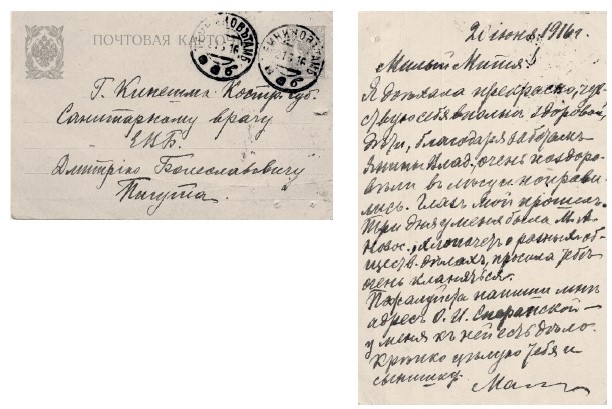 ПОЧТОВАЯ КАРТО
Г. Кинешма Костр. губ.
Санитарному врачу
ЕВБ.
Дмитрію Болеславовичу
Пигута.
2 іюня 1916 г.
Милый Митя!
Я доѣхала прекрасно, чув-
ствую себя вполнѣ здоровой,
Дѣти, благодаря заботамъ
Влад., очень поздоро-
вѣли и поправи-
лись. Глазъ мой прошелъ.
Три дня у меня была М. А.
Новос., хлопочетъ о разныхъ об-
ществ. дѣлахъ, просила тебѣ
очень кланяться.
Пожалуйста напиши мнѣ
адресъ О. И. Сперанской —
у меня къ ней есть дѣло.
Крѣпко цѣлую тебя и
сынишку.